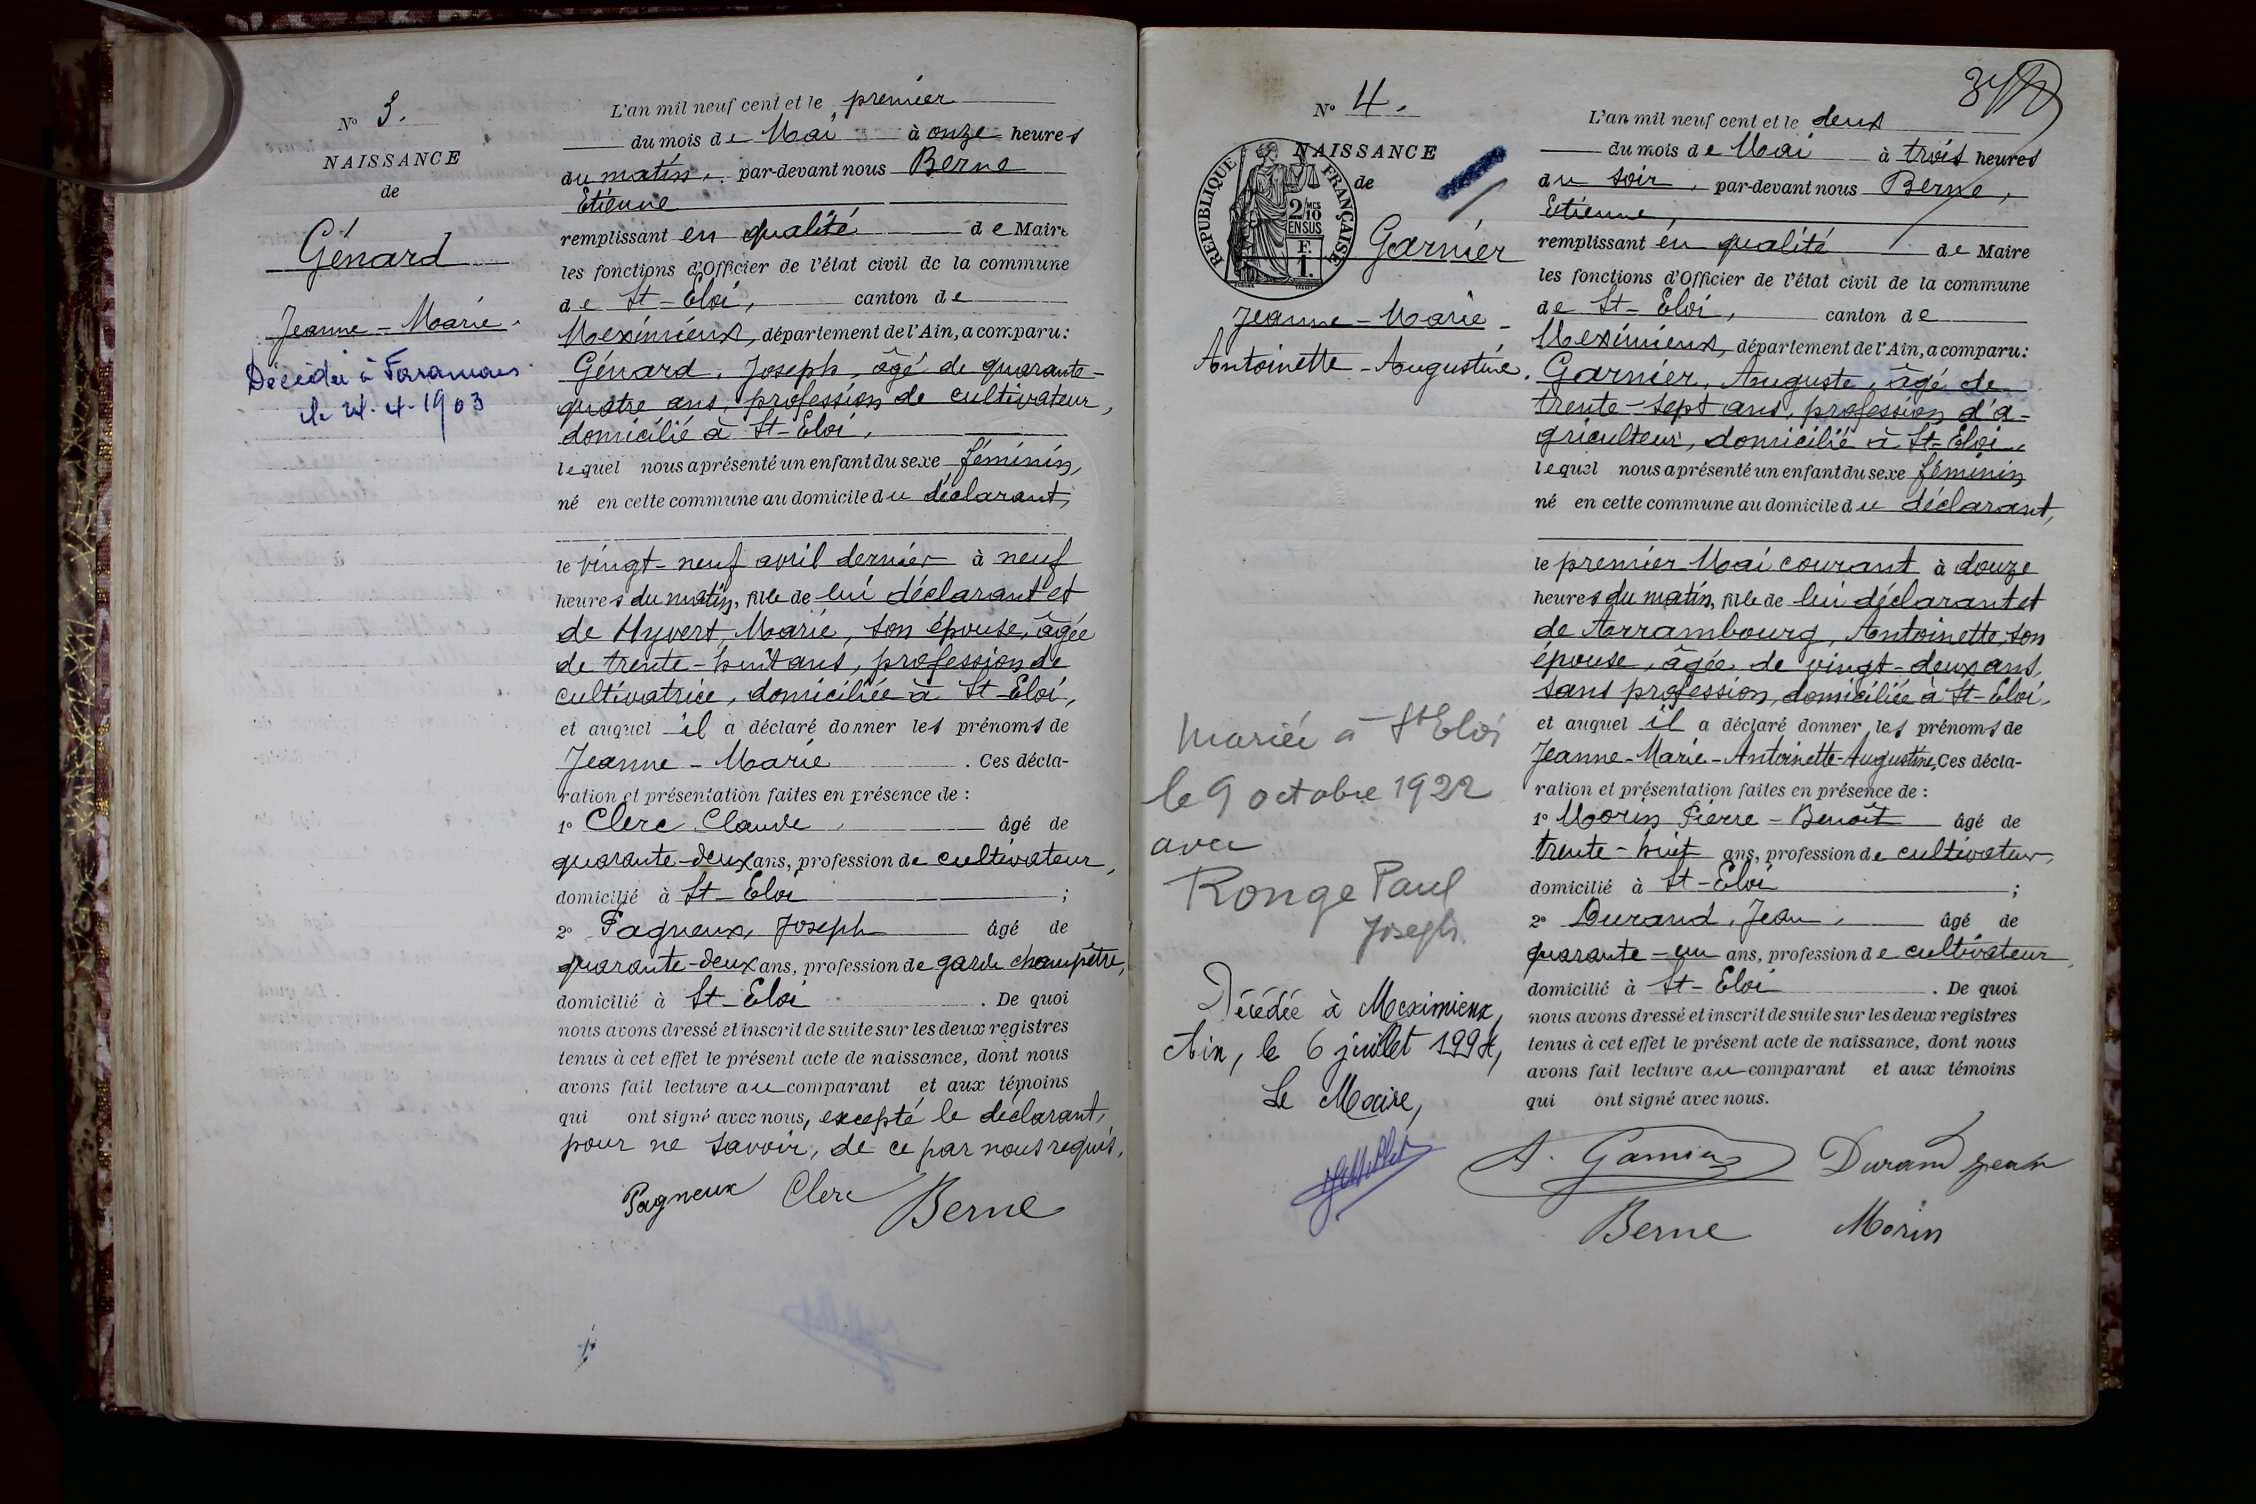 N° 3.
NAISSANCE
de
Génard
Jeanne - Marie.
Décédée à Faramans
le 24.4.1903
L'an mil neuf cent et le premier
du mois de Mai à onze heures
du matin, par-devant nous Berne
Etienne
remplissant en qualité de Maire
les fonctions d'Officier de l'état civil de la commune
de St-Eloi, canton de
Meximieux, département de l'Ain, a comparu:
Génard, Joseph, âgé de quarante-
quatre ans, profession de cultivateur,
domicilié à St-Eloi,
lequel nous a présenté un enfant du sexe féminin,
né en cette commune au domicile du déclarant,
le vingt-neuf avril dernier à neuf
heures du matin, fille de lui déclarant et
de Hyvert, Marie, son épouse, âgée
de trente-huit ans, profession de
cultivatrice, domiciliée à St-Eloi,
et auquel il a déclaré donner les prénoms de
Jeanne - Marie . Ces décla-
ration et présentation faites en présence de :
1° Clerc Claude, âgé de
quarante-deux ans, profession de cultivateur,
domicilié à St-Eloi ;
2° Pagneux, Joseph âgé de
quarante-deux ans, profession de garde champêtre,
domicilié à St-Eloi . De quoi
nous avons dressé et inscrit de suite sur les deux registres
tenus à cet effet le présent acte de naissance, dont nous
avons fait lecture au comparant et aux témoins
qui ont signé avec nous, excepté le déclarant,
pour ne savoir, de ce par nous requis.
Pagneux Clerc Berne
N° 4.
NAISSANCE
de
RÉPUBLIQUE FRANÇAISE
2/10 MES
EN SUS
F.
1.
Garnier
Jeanne-Marie-
Antoinette-Augustine.
mariée à St Eloi
le 9 octobre 1922
avec
Ronge Paul
Joseph.
Décédée à Meximieux,
Ain, le 6 juillet 1994,
Le Maire,
L'an mil neuf cent et le deux
du mois de Mai à trois heures
du soir, par-devant nous Berne,
Etienne,
remplissant en qualité de Maire
les fonctions d'Officier de l'état civil de la commune
de St-Eloi, canton de
Meximieux, département de l'Ain, a comparu:
Garnier, Auguste, âgé de
trente-sept ans, profession d'a-
griculteur, domicilié à St-Eloi,
lequel nous a présenté un enfant du sexe féminin
né en cette commune au domicile du déclarant,
le premier Mai courant à douze
heures du matin, fille de lui déclarant et
de Arrambourg, Antoinette, son
épouse, âgée de vingt-deux ans,
sans profession, domiciliée à St-Eloi,
et auquel il a déclaré donner les prénoms de
Jeanne-Marie-Antoinette-Augustine, Ces décla-
ration et présentation faites en présence de :
1° Morin Pierre-Benoît âgé de
trente-huit ans, profession de cultivateur,
domicilié à St-Eloi ;
2° Durand, Jean, âgé de
quarante-un ans, profession de cultivateur,
domicilié à St-Eloi . De quoi
nous avons dressé et inscrit de suite sur les deux registres
tenus à cet effet le présent acte de naissance, dont nous
avons fait lecture au comparant et aux témoins
qui ont signé avec nous.
A. Garnier Durand Jean
Berne Morin